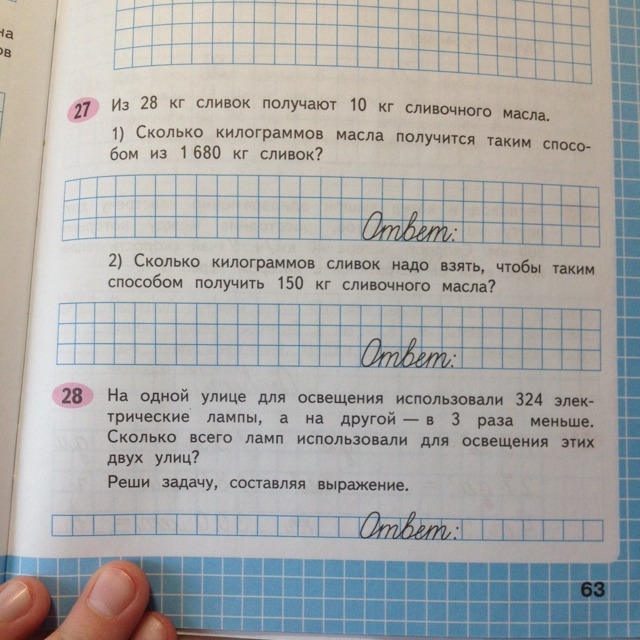 на
ов
27 Из 28 кг сливок получают 10 кг сливочного масла.
1) Сколько килограммов масла получится таким спосо-
бом из 1 680 кг сливок?
Ответ:
2) Сколько килограммов сливок надо взять, чтобы таким
способом получить 150 кг сливочного масла?
Ответ:
28 На одной улице для освещения использовали 324 элек-
трические лампы, а на другой — в 3 раза меньше.
Сколько всего ламп использовали для освещения этих
двух улиц?
Реши задачу, составляя выражение.
Ответ:
63